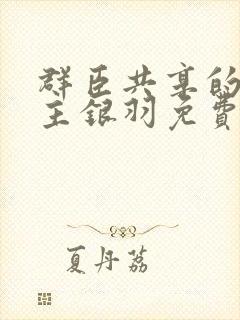 群臣共享的
主银羽免費
夏丹荔